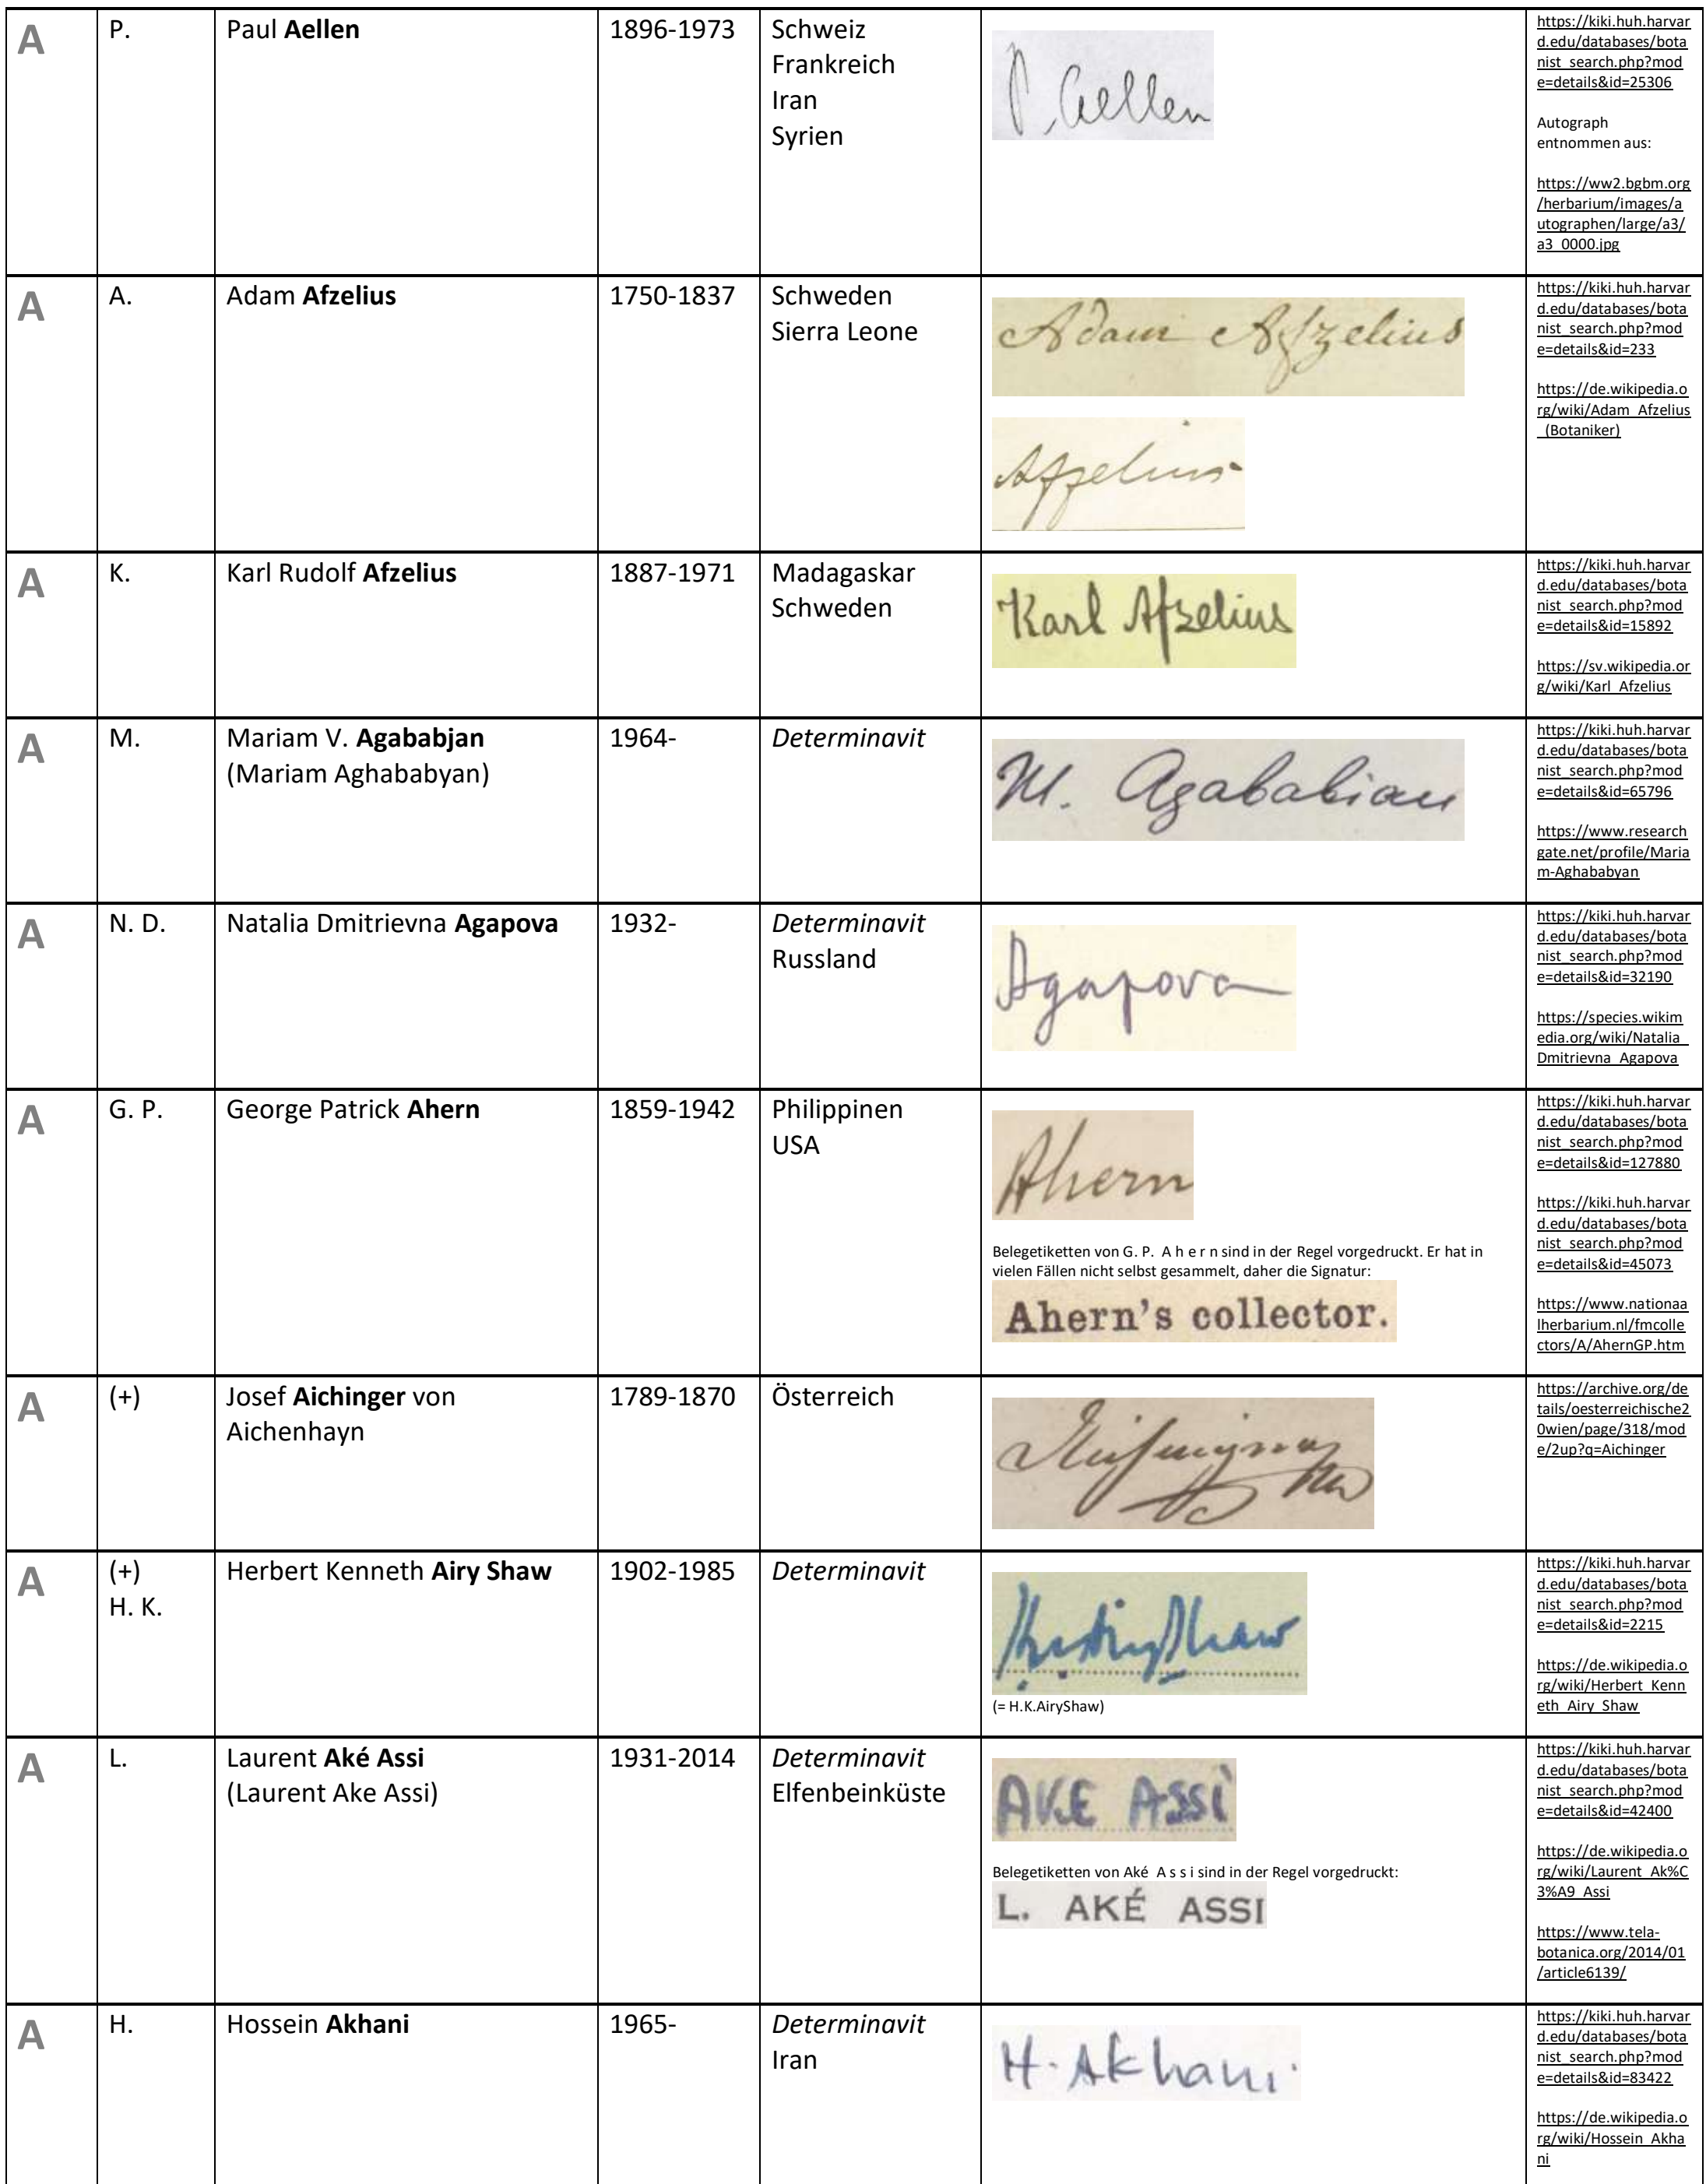 A
P.
Paul Aellen
1896-1973
Schweiz
Frankreich
Iran
Syrien
P. Aellen
https://kiki.huh.harvar
d.edu/databases/bota
nist_search.php?mod
e=details&id=25306
Autograph
entnommen aus:
https://ww2.bgbm.org
/herbarium/images/a
utographen/large/a3/
a3_0000.jpg
A
A.
Adam Afzelius
1750-1837
Schweden
Sierra Leone
Adam Afzelius
Afzelius
https://kiki.huh.harvar
d.edu/databases/bota
nist_search.php?mod
e=details&id=233
https://de.wikipedia.o
rg/wiki/Adam_Afzelius
_(Botaniker)
A
K.
Karl Rudolf Afzelius
1887-1971
Madagaskar
Schweden
Karl Afzelius
https://kiki.huh.harvar
d.edu/databases/bota
nist_search.php?mod
e=details&id=15892
https://sv.wikipedia.or
g/wiki/Karl_Afzelius
A
M.
Mariam V. Agababjan
(Mariam Aghababyan)
1964-
Determinavit
M. Agababian
https://kiki.huh.harvar
d.edu/databases/bota
nist_search.php?mod
e=details&id=65796
https://www.research
gate.net/profile/Maria
m-Aghababyan
A
N. D.
Natalia Dmitrievna Agapova
1932-
Determinavit
Russland
Agapova
https://kiki.huh.harvar
d.edu/databases/bota
nist_search.php?mod
e=details&id=32190
https://species.wikim
edia.org/wiki/Natalia_
Dmitrievna_Agapova
A
G. P.
George Patrick Ahern
1859-1942
Philippinen
USA
Ahern
Belegetiketten von G. P. A h e r n sind in der Regel vorgedruckt. Er hat in
vielen Fällen nicht selbst gesammelt, daher die Signatur:
Ahern's collector.
https://kiki.huh.harvar
d.edu/databases/bota
nist_search.php?mod
e=details&id=127880
https://kiki.huh.harvar
d.edu/databases/bota
nist_search.php?mod
e=details&id=45073
https://www.nationaa
lherbarium.nl/fmcolle
ctors/A/AhernGP.htm
A
(+)
Josef Aichinger von
Aichenhayn
1789-1870
Österreich
https://archive.org/de
tails/oesterreichische2
0wien/page/318/mod
e/2up?q=Aichinger
A
(+)
H. K.
Herbert Kenneth Airy Shaw
1902-1985
Determinavit
H.K.AiryShaw
(= H.K.AiryShaw)
https://kiki.huh.harvar
d.edu/databases/bota
nist_search.php?mod
e=details&id=2215
https://de.wikipedia.o
rg/wiki/Herbert_Kenn
eth_Airy_Shaw
A
L.
Laurent Aké Assi
(Laurent Ake Assi)
1931-2014
Determinavit
Elfenbeinküste
AKE ASSi
Belegetiketten von Aké A s s i sind in der Regel vorgedruckt:
L. AKÉ ASSI
https://kiki.huh.harvar
d.edu/databases/bota
nist_search.php?mod
e=details&id=42400
https://de.wikipedia.o
rg/wiki/Laurent_Ak%C
3%A9_Assi
https://www.tela-
botanica.org/2014/01
/article6139/
A
H.
Hossein Akhani
1965-
Determinavit
Iran
H. Akhani
https://kiki.huh.harvar
d.edu/databases/bota
nist_search.php?mod
e=details&id=83422
https://de.wikipedia.o
rg/wiki/Hossein_Akha
ni